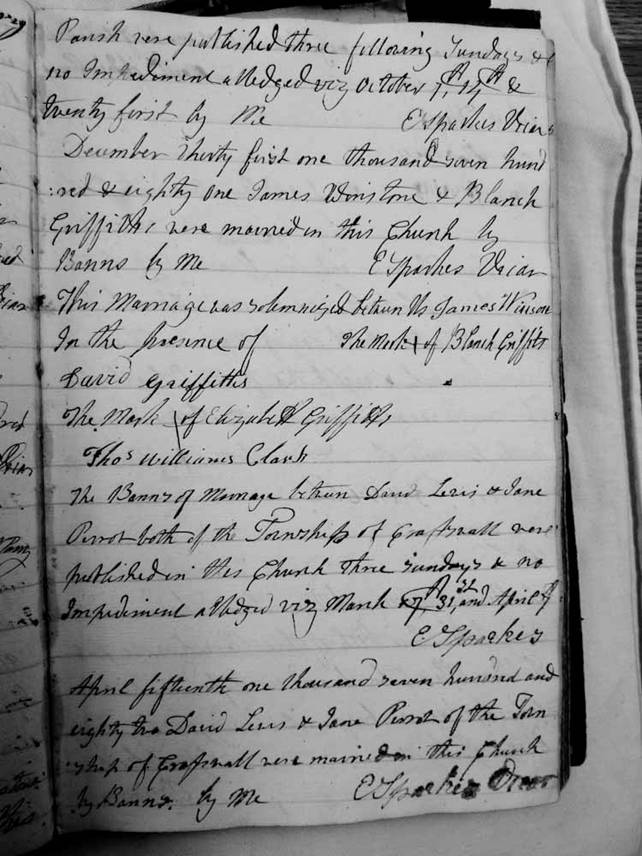 Parish were published three following Sundays &
no Impediment alledged viz October 7th, 14th &
twenty first by Me E Sparkes Vicar
December thirty first one thousand seven hund
:red & eighty one James Winstone & Blanch
Griffiths were married in this Church by
Banns by Me E Sparkes Vicar
This Marriage was solemnized between Us James Winson
In the presence of The Mark of Blanch Griffits
David Griffiths
The Mark of Elizabeth Griffiths
Thos Williams Clark
The Banns of Marriage between David Lewis & Jane
Perrot both of the Township of Crasswall were
published in this Church three Sundays & no
Impediment alledged viz March 31st, and April
E Sparkes
April fifteenth one thousand seven hundred and
eighty two David Lewis & Jane Perrot of the Town
:ship of Crasswall were married in this Church
by Banns. by Me E Sparkes Vicar